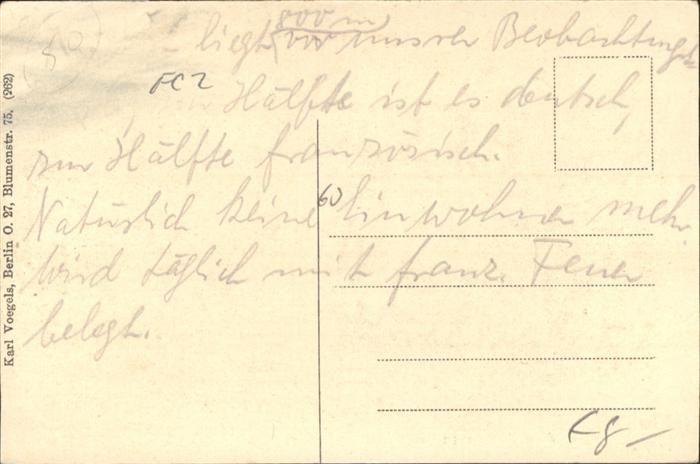 800 m
liegt vor unsrer Beobachtungs
FC2
Hälfte ist es deutsch,
zur Hälfte französisch.
Natürlich keine Einwohner mehr
60
Wird täglich mit franz. Feuer
belegt.
Karl Voegels, Berlin O. 27, Blumenstr. 75. (262)